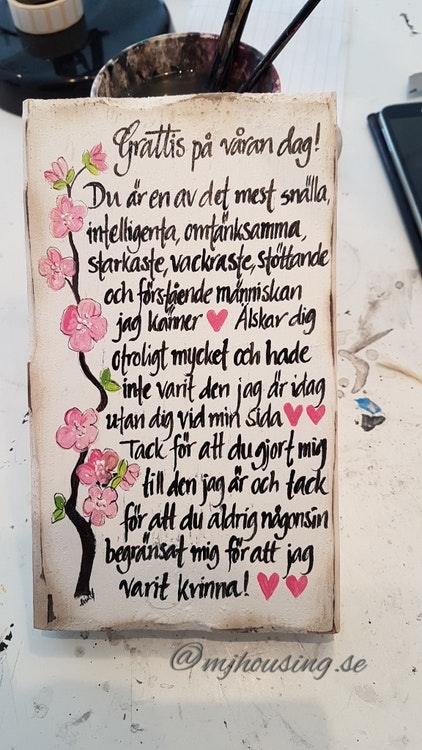 Grattis på våran dag!
Du är en av det mest snälla,
intelligenta, omtänksamma,
starkaste, vackraste, stöttande
och förstående människan
jag känner Älskar dig
otroligt mycket och hade
inte varit den jag är idag
utan dig vid min sida
Tack för att du gjort mig
till den jag är och tack
för att du aldrig någonsin
begränsat mig för att jag
varit kvinna!
@mjhousing.se